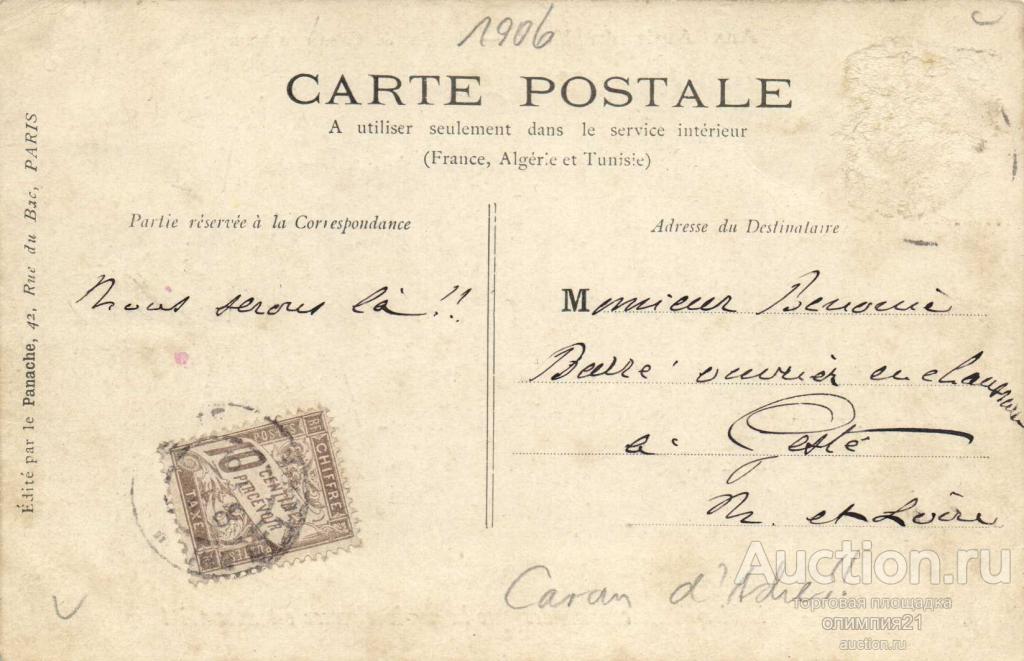 1906
CARTE POSTALE
A utiliser seulement dans le service intérieur
(France, Algérie et Tunisie)
Partie réservée à la Correspondance
Adresse du Destinataire
Édité par le Panache, 42, Rue du Bac, PARIS
Nous serons là !!
Monsieur
Barré ouvrier en chaussures
à Gesté
M. et Loire
POSTES
RF
CHIFFRE
10
CENTIMES
A PERCEVOIR
TAXE
Caran d'
Auction.ru
торговая площадка
олимпия21
auction.ru